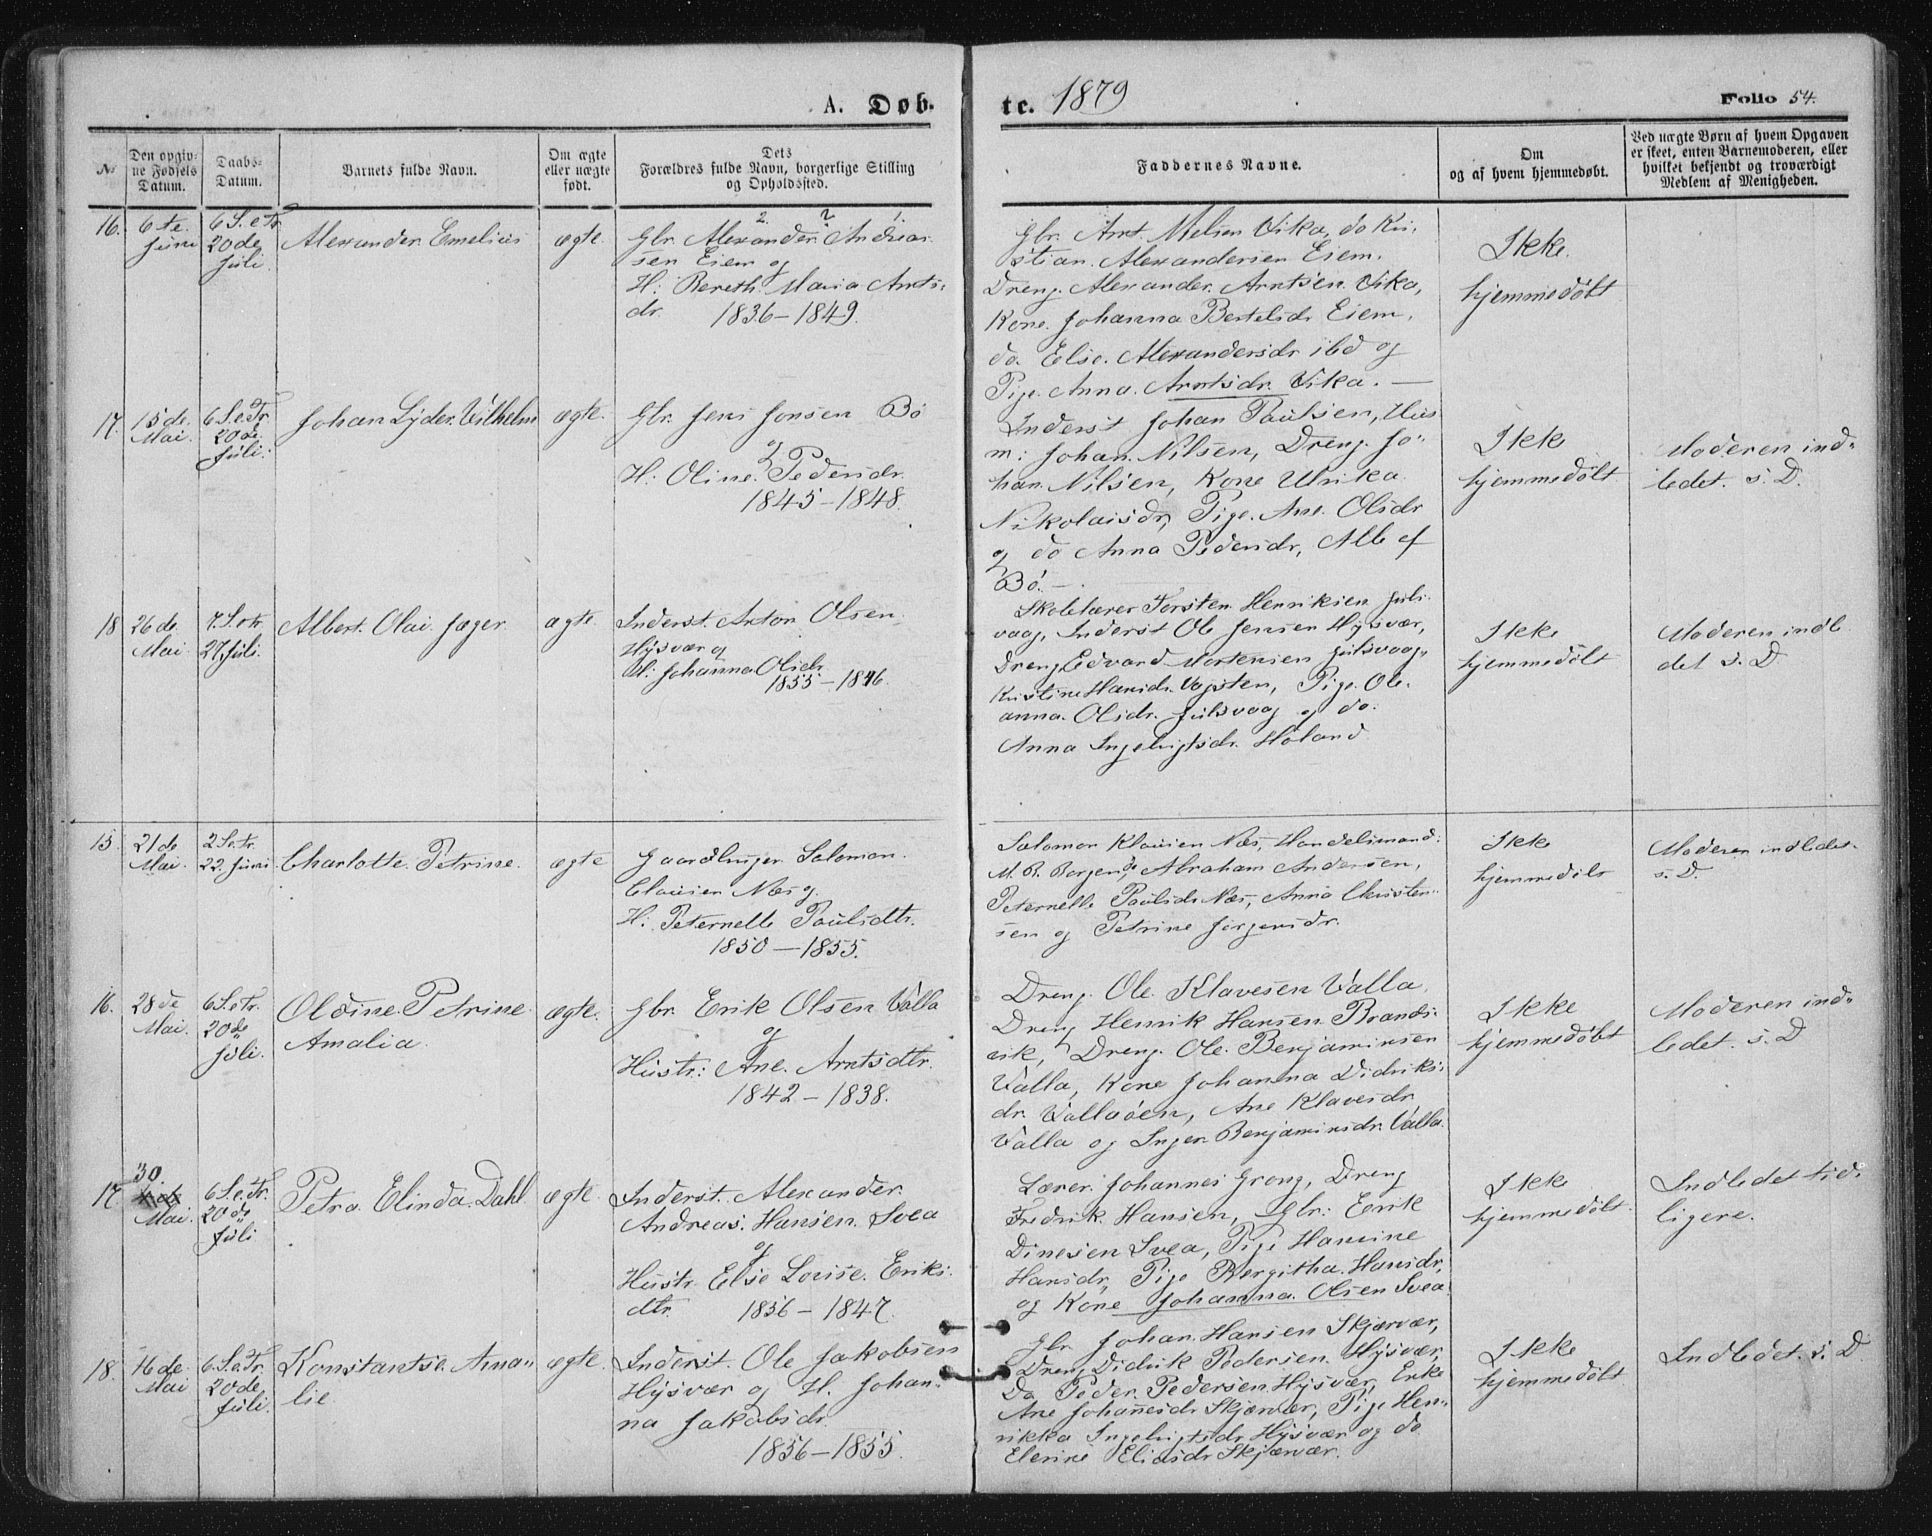 A. Døbte. 1879 Folio 54.
No
Den opgiv-
ne Fødsels
Datum.
Daabs-
Datum.
Barnets fulde Navn.
Om ægte
eller uægte
født.
Dets
Forældres fulde Navn, borgerlige Stilling
og Opholdssted.
Faddernes Navne.
Om
og af hvem hjemmedøbt.
Ved uægte Børn af hvem Opgaven
er skeet, enten Barnemoderen, eller
hvilket bekjendt og troværdigt
Medlem af Menigheden.
16.
6te
Juni
6 S. e Tr
20de
Juli.
Alexander Emelius
ægte.
Gbr. Alexander Andreas
sen Eiem og
H: Bereth Maria Arnts-
dr. 1836 – 1849.
Gbr. Arnt Nelsen Vika, do Kri-
stian Alexandersen Eiem.
Dreng Alexander Arntsen Vika,
Kone Johanna Bertelsdr Eiem,
do. Else Alexandersdr ibd og
Pige Anna Arntsdr. Vika. —
Ikke
hjemmedøbt
17.
15de
Mai.
6 S. e. Tr.
20de
Juli.
Johan Lyder Vilhelm
ægte.
Gbr. Jens Jonsen Bø
og
H: Oline Pedersdr
1845 – 1848.
Inderst Johan Paulsen, Hus
m: Johan Nilsen, Dreng Jo-
han Nilsen, Kone Ulrika
Nikolaisdr, Pige Ane Olsdr
og do Anna Pedersdr, Alle af
Bø. —
Ikke
hjemmedøbt
Moderen ind-
ledet. s. D.
18
26de
Mai
7. S. e tr.
27. Juli.
Albert Olai Jæger.
ægte.
Inderst. Anton Olsen
Hysvær og
H: Johanna Olsdr.
1855 – 1846.
Skolelærer Torsten Henriksen Juls
vaag, Inderst Ole Jensen Hysvær,
Dreng Edvard Mortensen Julsvaag,
Kristine Hansdr. Vægsten, Pige Ole-
anna Olsdr. Julsvaag og do.
Anna Ingebrigtsdr. Høland
Ikke
hjemmedøbt
Moderen indle
det s. D.
15.
21de
Mai.
2 S. e tr.
22. Juni
Charlotte Petrine.
ægte
Gaardbruger Salomon
Clausen Næs og
H: Peternelle Paulsdtr.
1850 – 1855.
Salomon Klausen Næs, Handelsmand
M. B. Borgen, Abraham Andersen,
Peternelle Paulsdr Næs, Anna Christen-
sen og Petrine Jørgensdr.
Ikke
hjemmedøbt
Moderen indledet
s. D.
16.
28de
Mai.
6 S. e Tr.
20de
Juli.
Oldine Petrine
Amalia.
ægte.
Gbr. Erik Olsen Valla
og
Hustr: Ane Arntsdtr.
1842 – 1838.
Dreng Ole Klavesen Valla,
Dreng Henrik Hansen Brands-
vik, Dreng Ole Benjaminsen
Valla, Kone Johanna Didriks-
dr. Vallaøen, Ane Klavesdr
Valla og Inger Benjaminsdr. Valla.
Ikke
hjemmedøbt
Moderen ind-
ledet. s. D
17.
30.
Mai.
6 S. e. Tr.
20de
Juli
Petra Elinda Dahl.
ægte.
Inderst Alexander
Andreas Hansen Svea
og
Hustr. Else Louise Eriks-
dtr. 1856 – 1847.
Lærer Johannes Grong, Dreng
Fredrik Hansen, Gbr: Erik
Dinesen Svea, Pige Hansine
Hansdr, Pige Bergitha Hansdr,
og Kone Johanna Olsen Svea.
Ikke
hjemmedøbt.
Indledet tid-
ligere.
18.
16de
Mai
6. S. e. Tr.
20de
Juli.
Konstantse Ama-
lie
ægte.
Inderst. Ole Jakobsen
Hysvær og H. Johan-
na Jakobsdr
1856 – 1855.
Gbr Johan Hansen Skjærvær,
Dreng Didrik Pedersen Hysvær,
Do Peder Pedersen Hysvær, Enke
Ane Johannesdr Skjærvær, Pige Hen-
rikka Ingebrigtsdr Hysvær og do
Elerine Eliasdr Skjærvær.
Ikke
hjemmedøbt
Indledet s. D